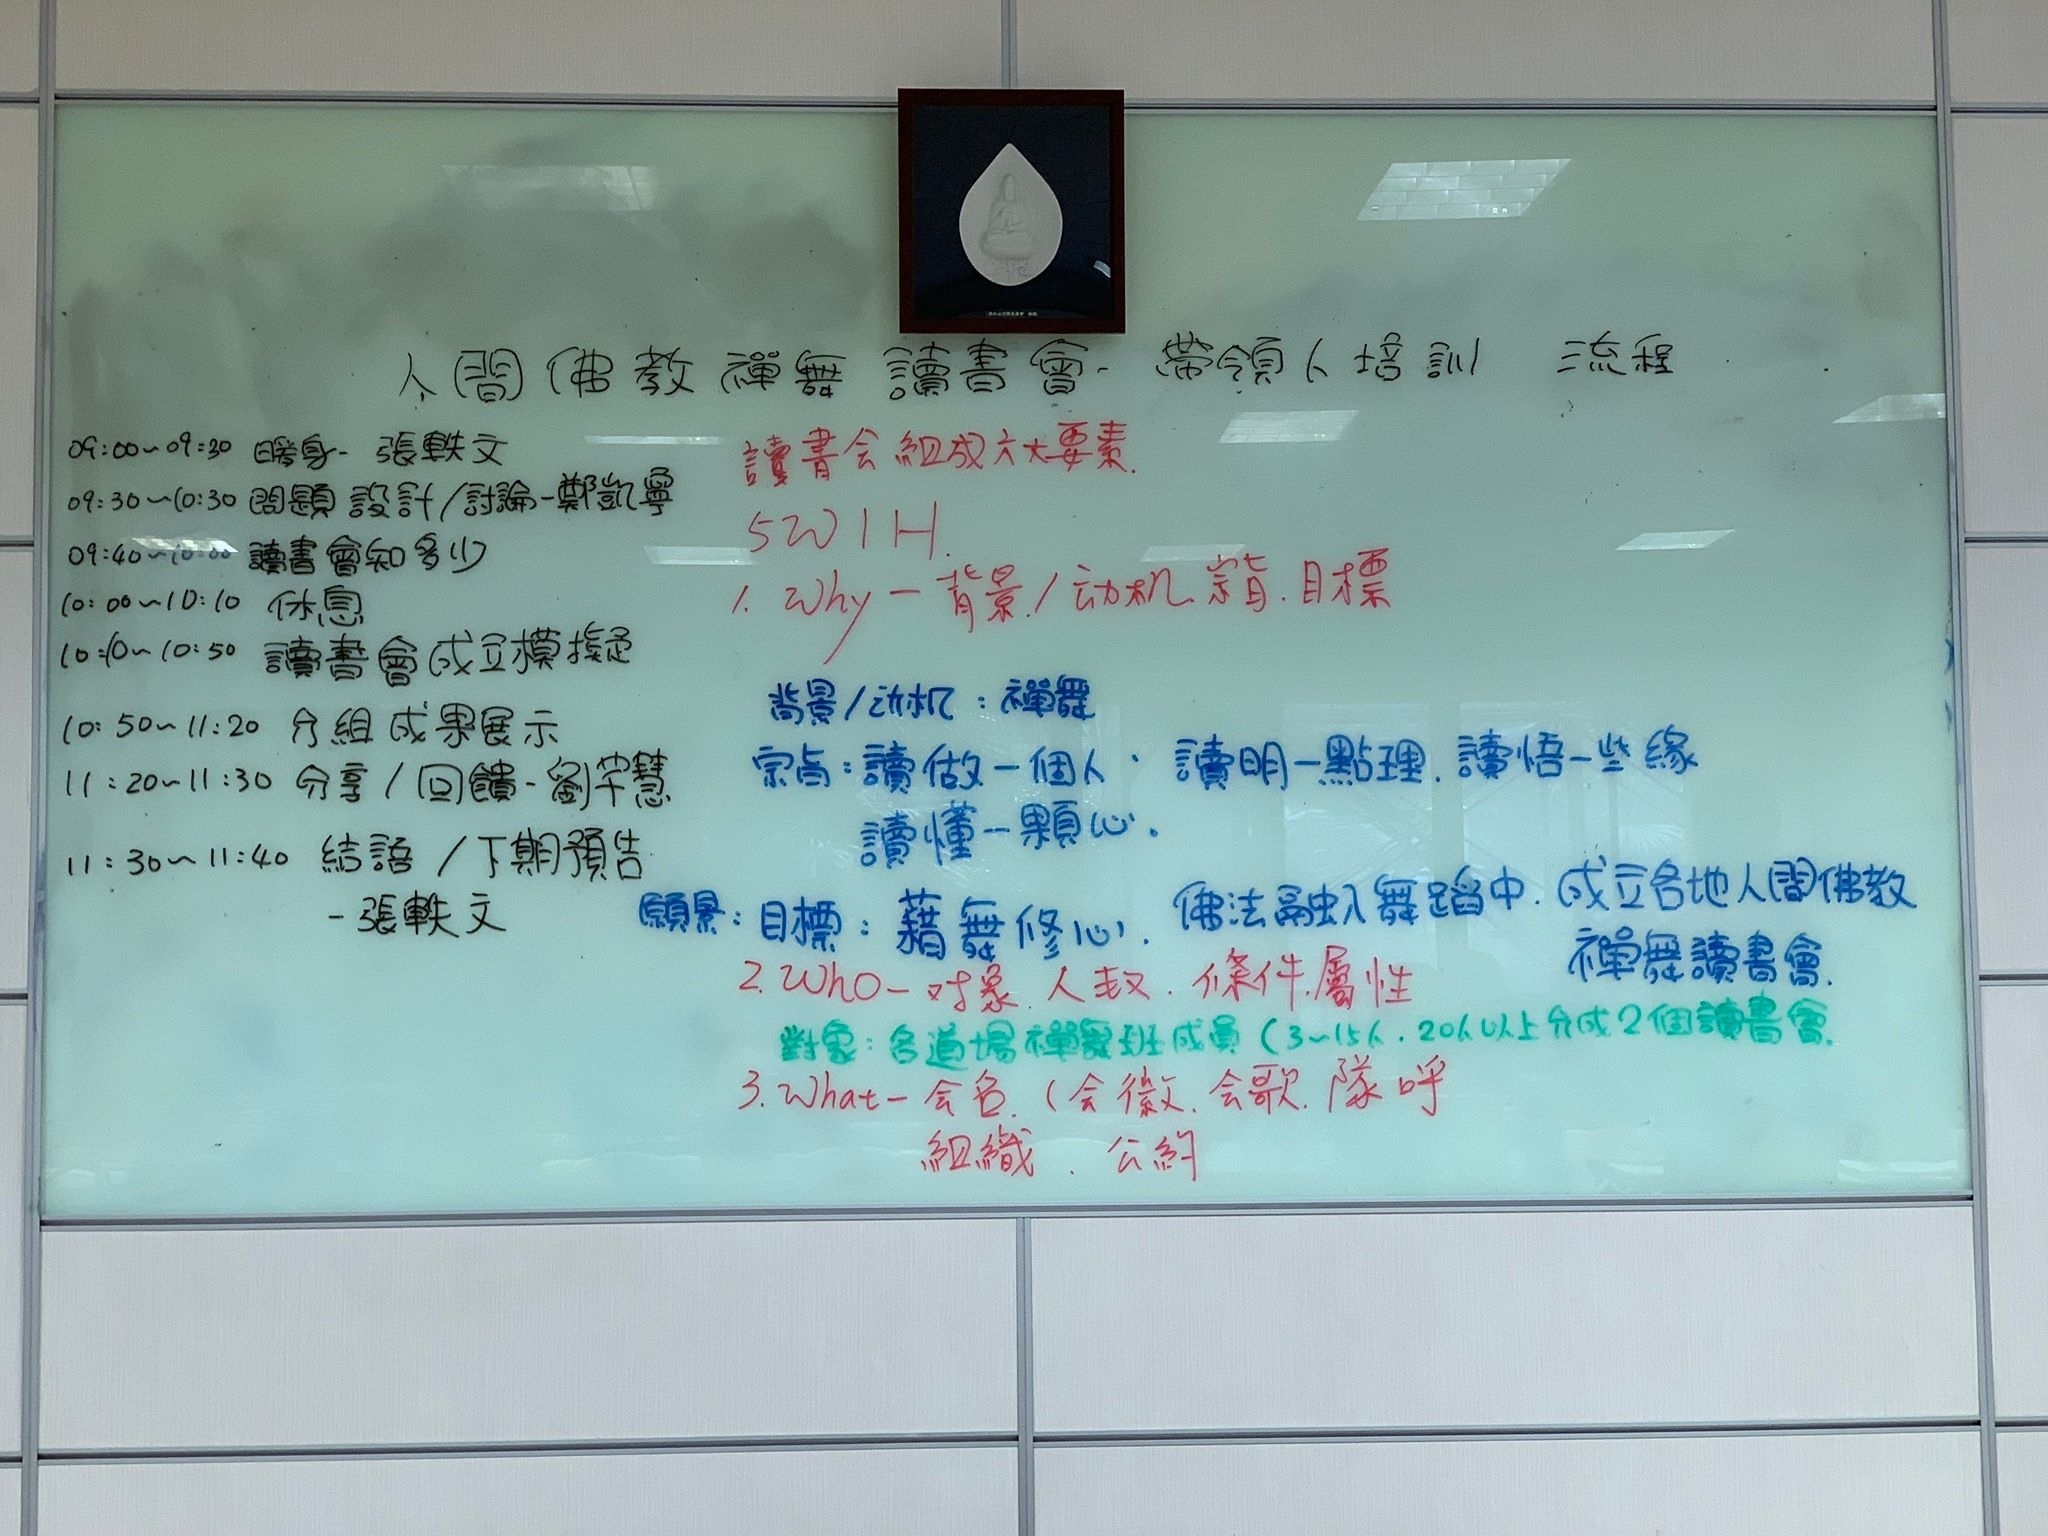 人間佛教禪舞 讀書會- 帶領人培訓 流程
09:00~09:30 暖身- 張軼文
09:30~10:30 問題設計/討論-鄭凱寧
09:40~10:00 讀書會知多少
10:00~10:10 休息
10:10~10:50 讀書會成立模擬
10:50~11:20 分組成果展示
11:20~11:30 分享/回饋-劉芊慧
11:30~11:40 結語/下期預告
-張軼文
讀書会組成六大要素.
5W1H.
1. Why-背景/动机.宗旨.目標
背景/动机:禪舞
宗旨:讀做一個人、讀明一點理.讀悟一些緣
讀懂一顆心.
願景:目標:藉舞修心.佛法融入舞蹈中.成立各地人間佛教
禪舞讀書會.
2. Who-对象.人数.條件.屬性
對象:各道場禪舞班成員(3~15人.20人以上分成2個讀書會.
3. What-会名.(会徽.会歌.隊呼
組織.公約